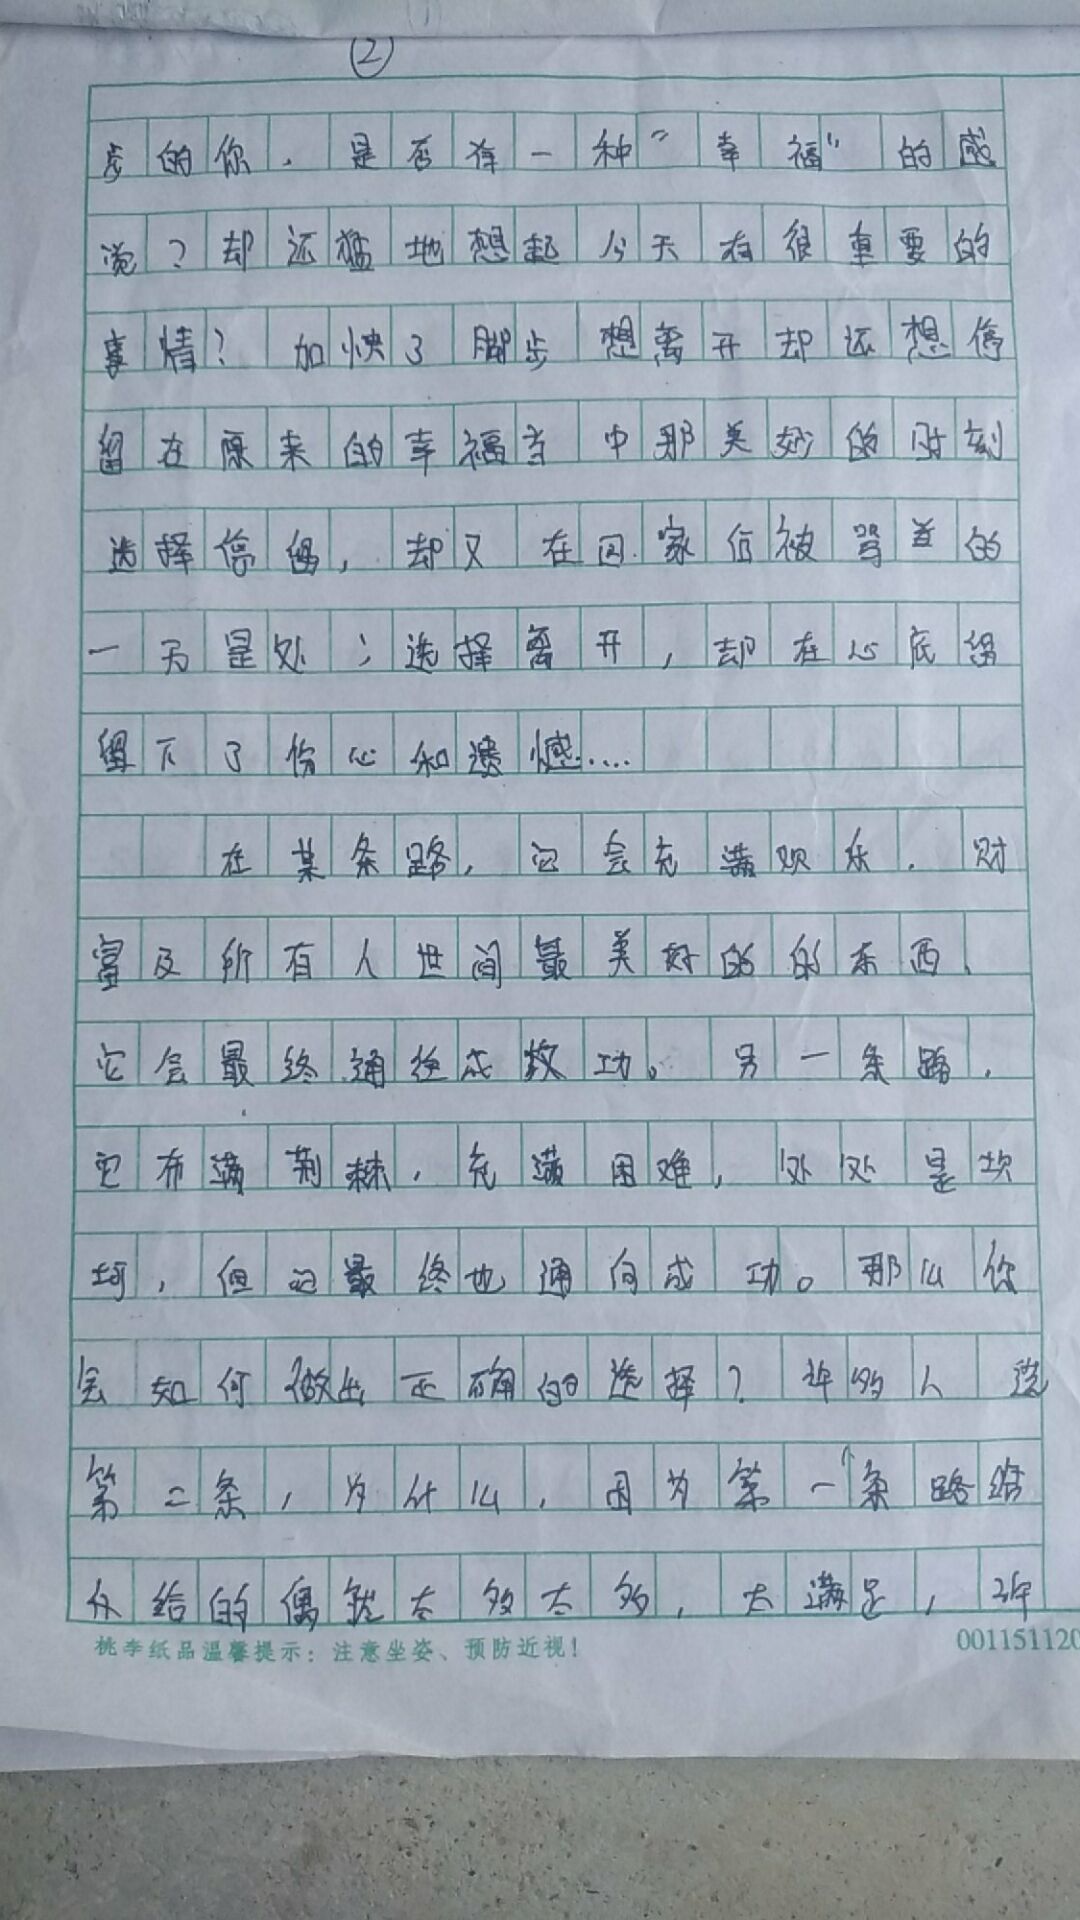 ②
步的你,是否有一种“幸福”的感
觉?却还猛地想起今天有很重要的
事情?加快了脚步想离开却还想停
留在原来的幸福当中那美妙的时刻
选择停留,却又在回家后被骂差的
一天是处;选择离开,却在心底留
留下了伤心和遗憾....
在某条路,它会充满欢乐,财
富及所有人世间最美好的的东西,
它会最终通往成功。另一条路,
它布满荆棘,充满困难,处处是坎
坷,但它最终也通向成功。那么你
会如何做出正确的选择?许多人选
第二条,为什么,因为第一条路给
给的偶然太多太多,太满足,许
桃李纸品温馨提示:注意坐姿、预防近视!
001151120